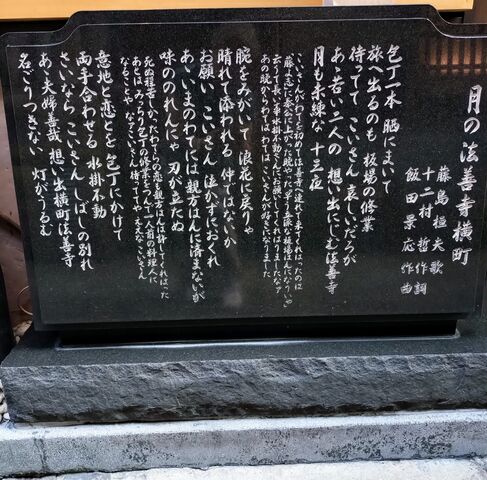 月の法善寺横町
藤島桓夫 歌
十二村 哲 作詞
飯田景応 作曲
包丁一本 晒にまいて
旅へ出るのも 板場の修業
待ってて こいさん 哀しいだろが
あゝ若い二人の 想い出にじむ法善寺
月も未練な 十三夜
こいさんがわてを初めて法善寺へ連れて来てくれはったのは
「藤よ志に奉公に上った晩やった 早う立派な板場はんになりいや」
云うて長い事水掛不動さんにお願いしてくれはりましたなァ
あの晩からわてはわてはこいさんが好きになりました
腕をみがいて 浪花に戻りゃ
晴れて添われる 仲ではないか
お願い こいさん 泣かずにおくれ
あゝ、いまのわてには 親方はんに済まないが
味ののれんにゃ 刃が立たぬ
死ぬ程苦しかったわてらの恋も親方はんは許してくれはった
あとはみっちり包丁の修業をつんで一人前の料理人に
なることや なァこいさん待っててや ええなこいさん
意地と恋とを 包丁にかけて
両手合わせる 水掛不動
さいなら こいさん しばしの別れ
あゝ夫婦善哉 想い出横町法善寺
名ごりつきない 灯がうるむ